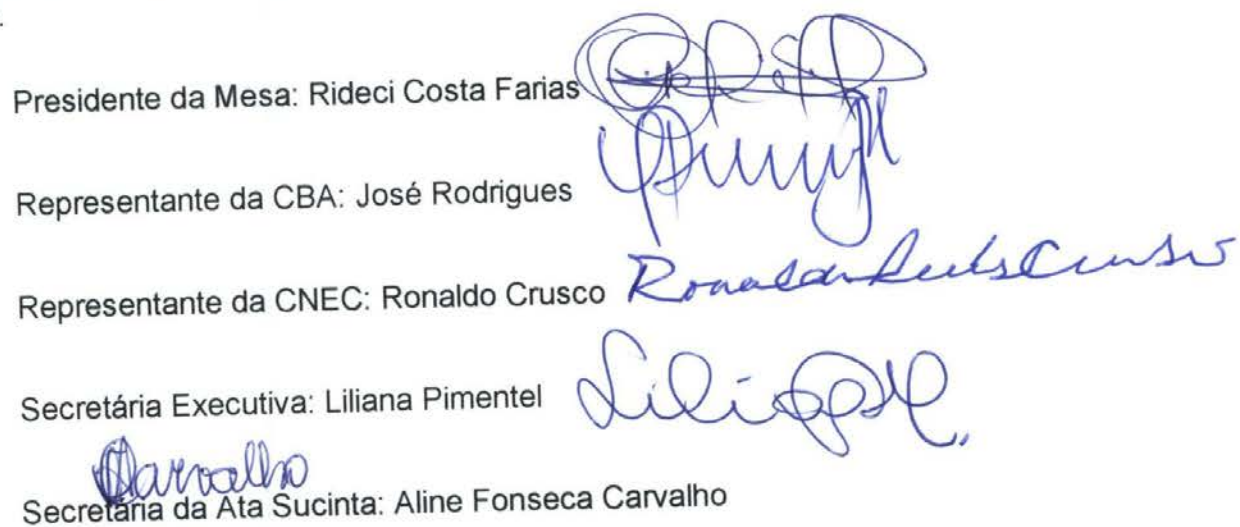 Presidente da Mesa: Rideci Costa Farias
Representante da CBA: José Rodrigues
Representante da CNEC: Ronaldo Crusco
Secretária Executiva: Liliana Pimentel
Carvalho
Secretária da Ata Sucinta: Aline Fonseca Carvalho